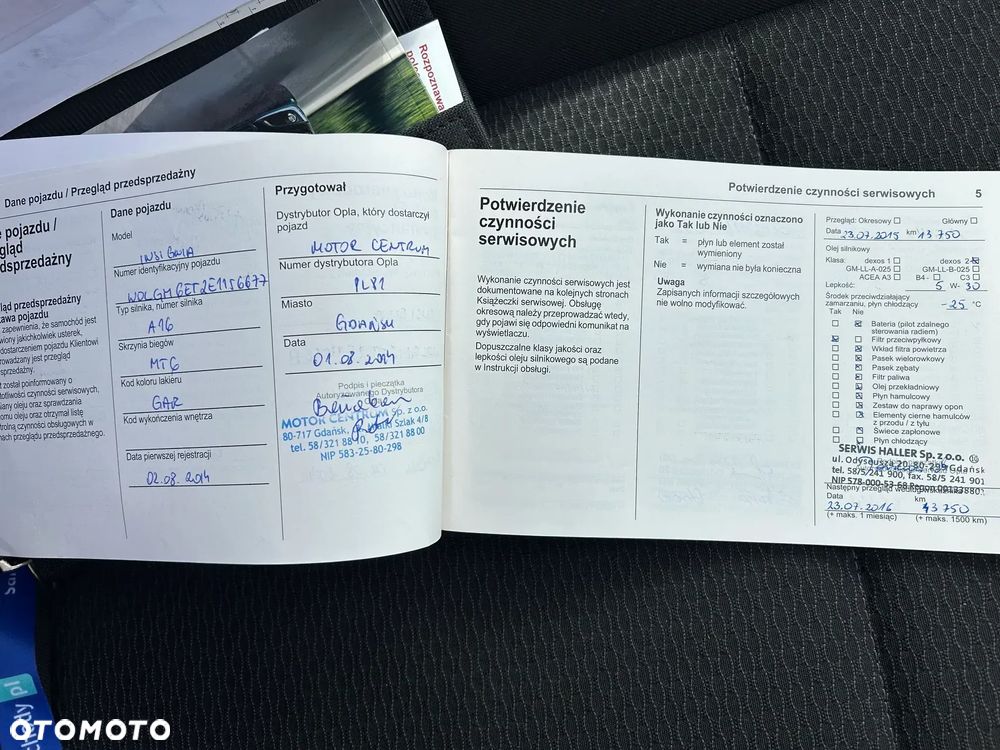 Rozpoznawa
Dane pojazdu / Przegląd przedsprzedażny
e pojazdu /
gląd
edsprzedażny
ląd przedsprzedażny
tawa pojazdu
zapewnienia, że samochód jest
wiony jakichkolwiek usterek,
dostarczeniem pojazdu Klientowi
rowadzany jest przegląd
sprzedażny.
t został poinformowany o
totliwości czynności serwisowych,
iany oleju oraz sprawdzania
omu oleju oraz otrzymał listę
trolną czynności obsługowych w
ach przeglądu przedsprzedażnego.
Dane pojazdu
Model
INSIGNIA
Numer identyfikacyjny pojazdu
W0LGM6ET2E1156677
Typ silnika, numer silnika
A16
Skrzynia biegów
MT6
Kod koloru lakieru
GAR
Kod wykończenia wnętrza
Data pierwszej rejestracji
02.08.2014
Przygotował
Dystrybutor Opla, który dostarczył
pojazd
MOTOR CENTRUM
Numer dystrybutora Opla
PL81
Miasto
GDAŃSK
Data
01.08.2014
Podpis i pieczątka
Autoryzowanego Dystrybutora
MOTOR CENTRUM Sp. z o.o.
80-717 Gdańsk, Szlak 4/8
tel. 58/321 88 00
NIP 583-25-80-298
Potwierdzenie czynności serwisowych 5
Potwierdzenie
czynności
serwisowych
Wykonanie czynności serwisowych jest
dokumentowane na kolejnych stronach
Książeczki serwisowej. Obsługę
okresową należy przeprowadzać wtedy,
gdy pojawi się odpowiedni komunikat na
wyświetlaczu.
Dopuszczalne klasy jakości oraz
lepkości oleju silnikowego są podane
w Instrukcji obsługi.
Wykonanie czynności oznaczono
jako Tak lub Nie
Tak = płyn lub element został
wymieniony
Nie = wymiana nie była konieczna
Uwaga
Zapisanych informacji szczegółowych
nie wolno modyfikować.
Przegląd: Okresowy Główny
Data 23.07.2015 km 13 750
Olej silnikowy
Klasa: dexos 1 dexos 2
GM-LL-A-025 GM-LL-B-025
ACEA A3 B4 - C3
Lepkość: 5 W- 30
Środek przeciwdziałający
zamarzaniu, płyn chłodzący -25 °C
Tak Nie
Bateria (pilot zdalnego
sterowania radiem)
Filtr przeciwpyłkowy
Wkład filtra powietrza
Pasek wielorowkowy
Pasek zębaty
Filtr paliwa
Olej przekładniowy
Płyn hamulcowy
Zestaw do naprawy opon
Elementy cierne hamulców
z przodu / z tyłu
Świece zapłonowe
Płyn chłodzący
SERWIS HALLER Sp. z o.o.
ul. Odyseusza 20, 80-299 Gdańsk
tel. 58/5 241 900, fax. 58/5 241 901
NIP 578-000-53-68 Regon
Następny przegląd według
Data km
23.07.2016 43 750
(+ maks. 1 miesiąc) (+ maks. 1500 km)
OTOMOTO